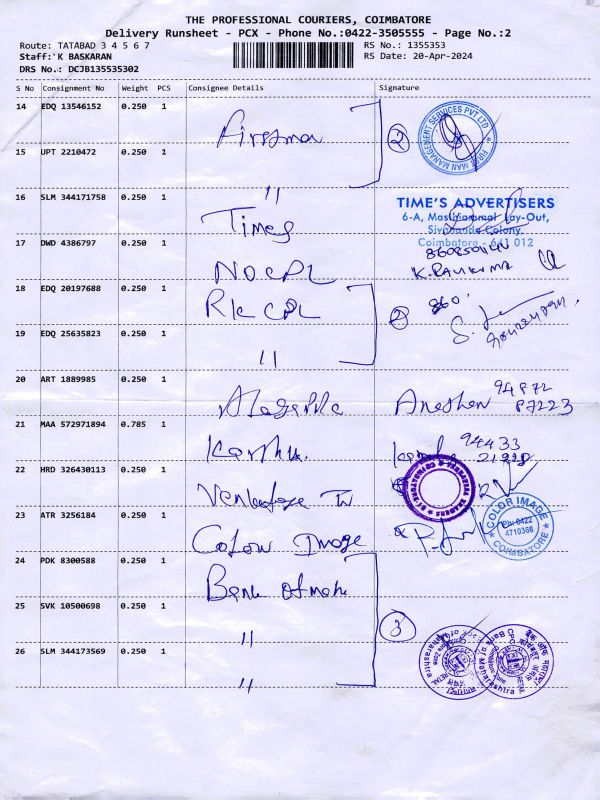 THE PROFESSIONAL COURIERS, COIMBATORE
Delivery Runsheet - PCX - Phone No.:0422-3505555 - Page No.:2
Route: TATABAD 3 4 5 6 7
RS No.: 1355353
Staff: K BASKARAN
RS Date: 20-Apr-2024
DRS No.: DCJB135535302
S No Consignment No Weight PCS Consignee Details Signature
14 EDQ 13546152 0.250 1
Firstman
2
FIRST MAN MANAGEMENT SERVICES PVT LTD
15 UPT 2210472 0.250 1
"
16 SLM 344171758 0.250 1
Times
TIME'S ADVERTISERS
6-A, Masthiammal Lay-Out,
Sivananda Colony,
Coimbatore - 641 012
17 DWD 4386797 0.250 1
NOCPL
18 EDQ 20197688 0.250 1
RK CPL
2
860
19 EDQ 25635823 0.250 1
"
20 ART 1889985 0.250 1
94872
87223
21 MAA 572971894 0.785 1
94433
22 HRD 326430113 0.250 1
23 ATR 3256184 0.250 1
Colour Image
COLOR IMAGE
PH: 0422
4710366
COIMBATORE
24 PDK 8300588 0.250 1
Bank of mah
25 SVK 10500698 0.250 1
"
3
26 SLM 344173569 0.250 1
"
Bank of Maharashtra